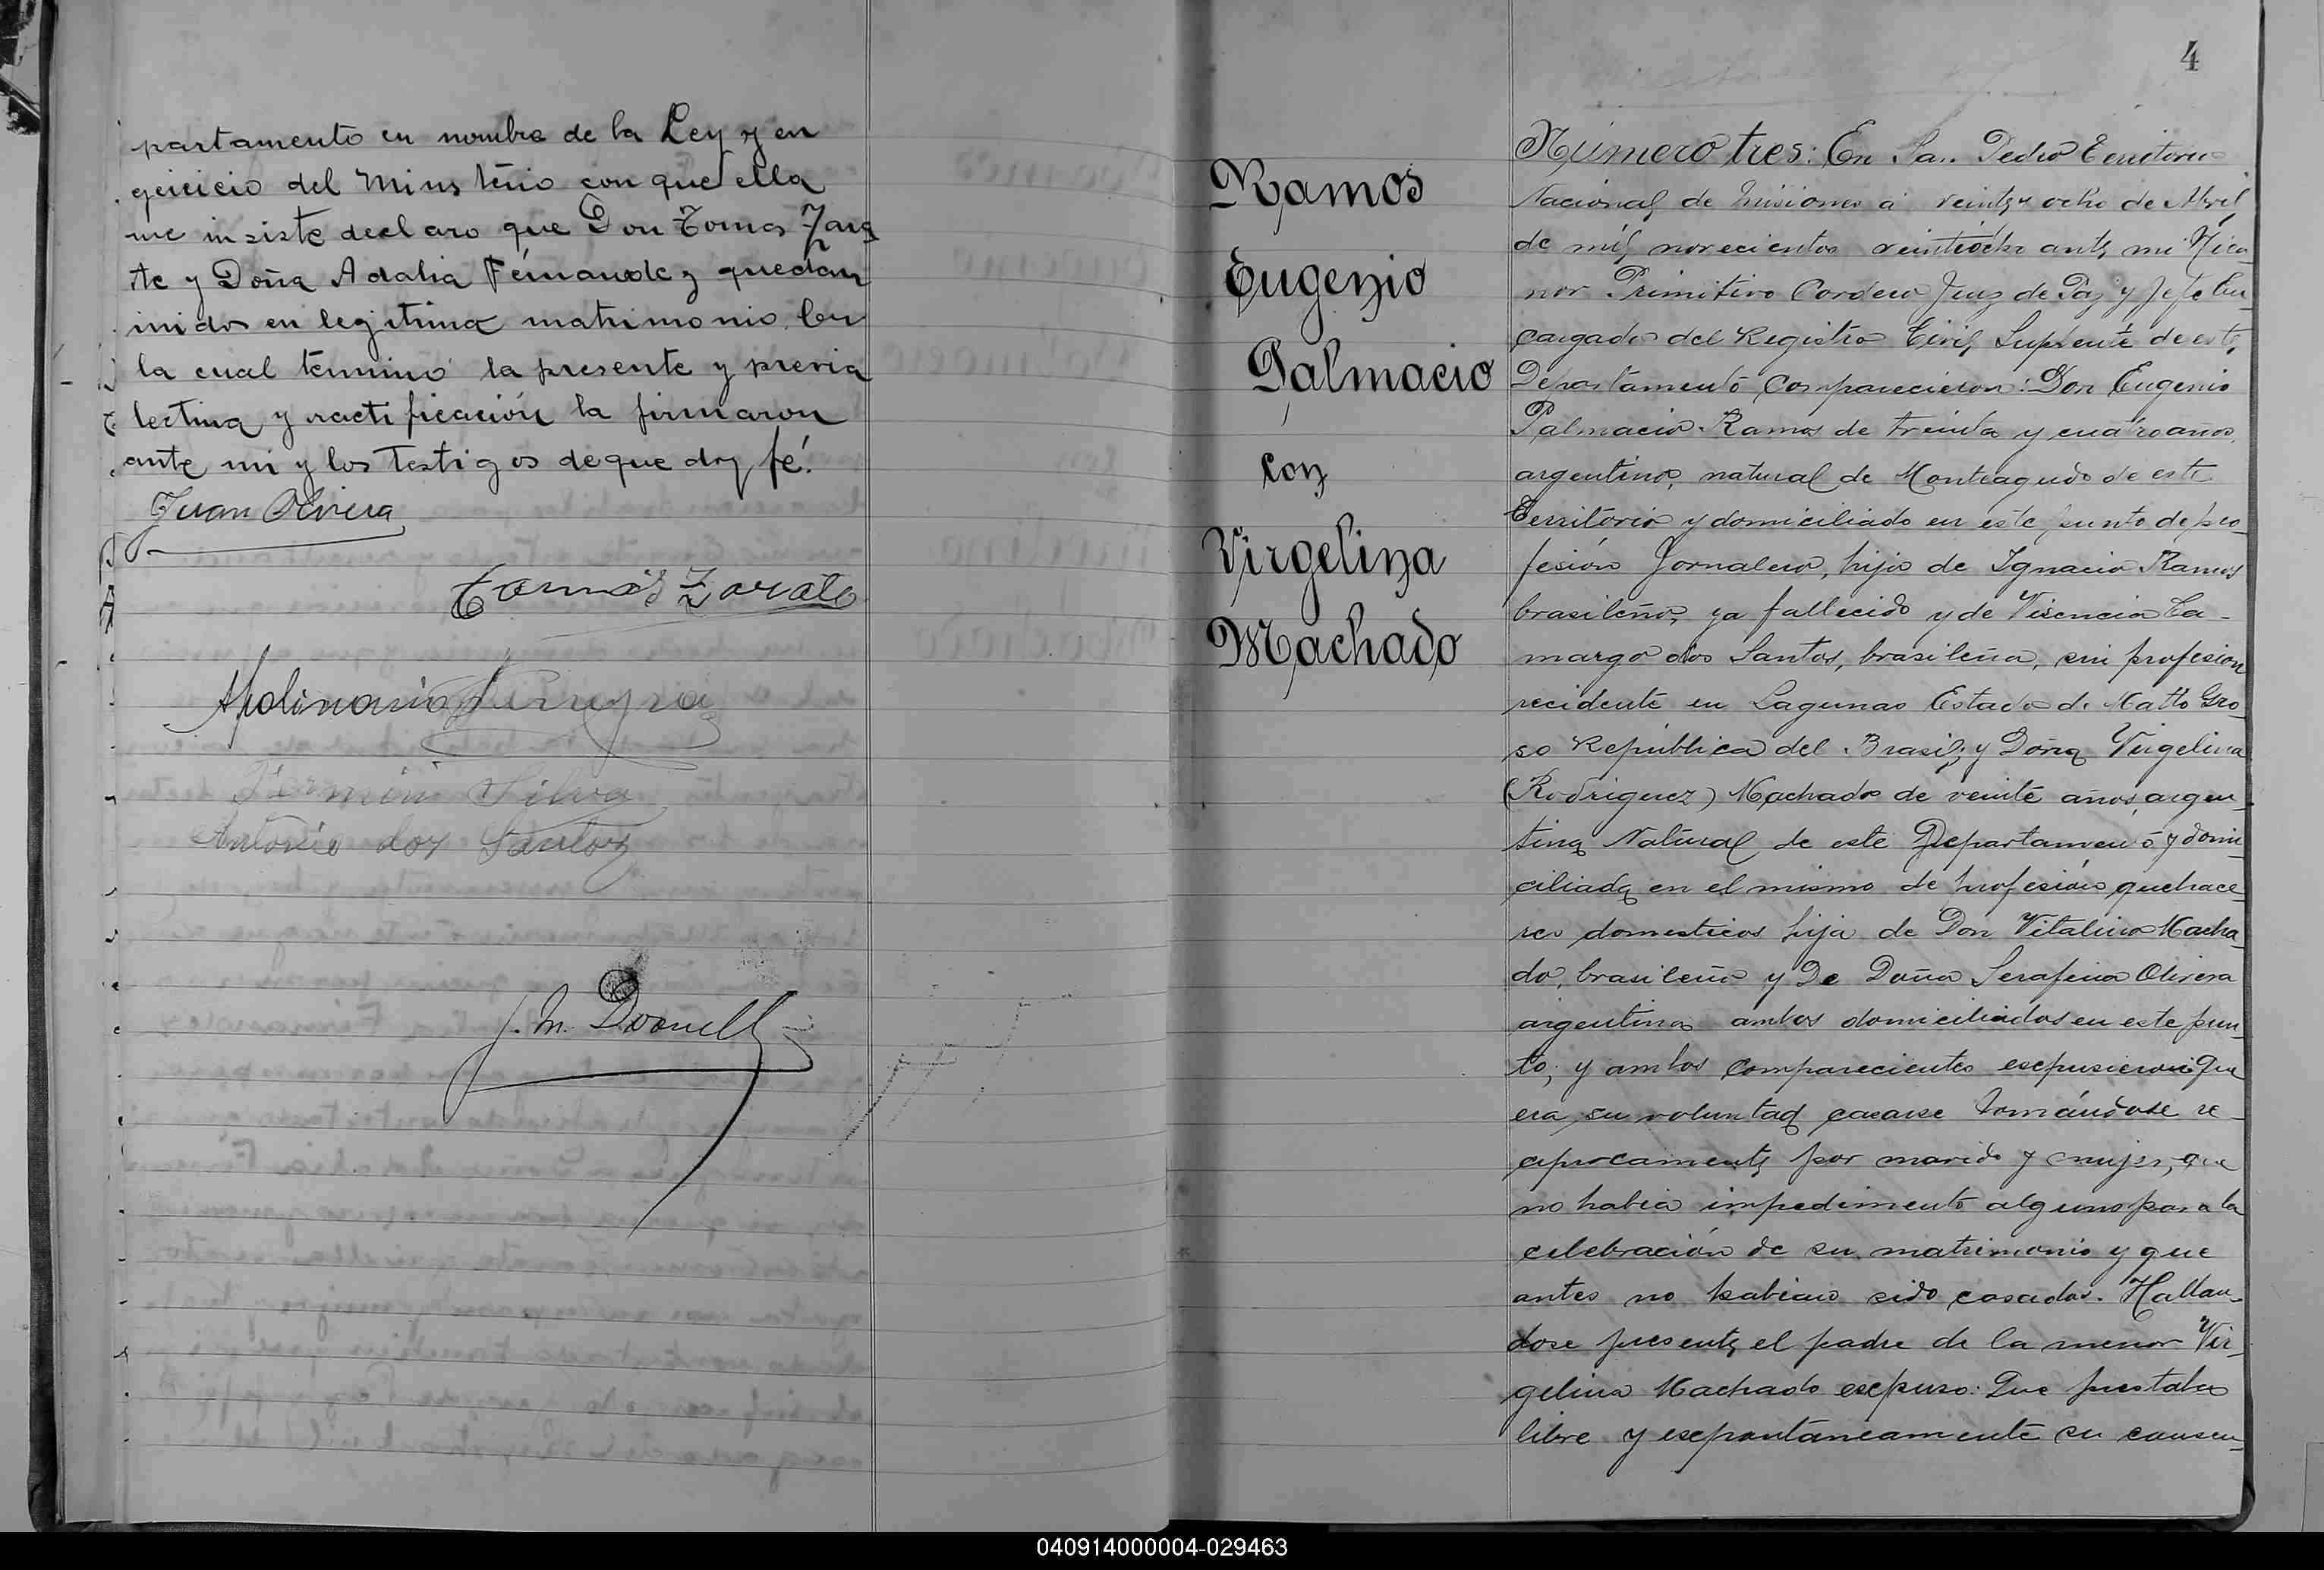 partamento en nombre de la Ley y en
ejercicio del Ministerio con que ella
me insiste declaro que Don Tomas Zara
te y Doña Adalia Fernandez quedan
unidos en legitima matrimonio. Con
la cual terminó la presente y previa
lectura y ractificación la firmaron
ante mi y los Testigos de que doy fé.
Juan Olivera
Tomás Zarate
Apolinario Pereyra
Fermin Silva
Antonio dos Santos
J. M. Doonell
4
Ramos
Eugenio
Palmacio
con
Virgelina
Machado
Número tres: En San Pedro Territorio
Nacional de Misiones á veinty ocho de Abril
de mil novecientos veintiocho ante mi Nica
nor Primitivo Cordero Juez de Paz y Jefe En
cargado del Registro Civil Suplente de este
Departamento Comparecieron: Don Eugenio
Palmacio Ramos de treinta y cuatro años,
argentino, natural de Monteagudo de este
Territorio y domiciliado en este punto de pro
fesión Jornalero, hijo de Ignacio Ramos
brasileño, ya fallecido y de Visencia Ca-
margo dos Santos, brasileña, sin profesion
recidente en Lagunas Estado de Matto Gro-
so República del Brasil; y Doña Virgelina
(Rodriguez) Machado de veinte años, argen-
tina Natural de este Departamento y domi-
ciliada en el mismo de profesión quehace-
res domesticos hija de Don Vitalino Macha-
do, brasileño y De Doña Serafina Olivera
argentina ambos domiciliados en este pun-
to; y ambos comparecientes esepusieron: Que
era su voluntad casarse tomándose re-
ciprocamente por marido y mujer, que
no habia impedimento alguno para la
celebración de su matrimonio y que
antes no habian sido casados. Hallan-
dose presente el padre de la menor Vir-
gelina Machado esepuso: Que prestaba
libre y esepontaneamente su consen-
040914000004-029463